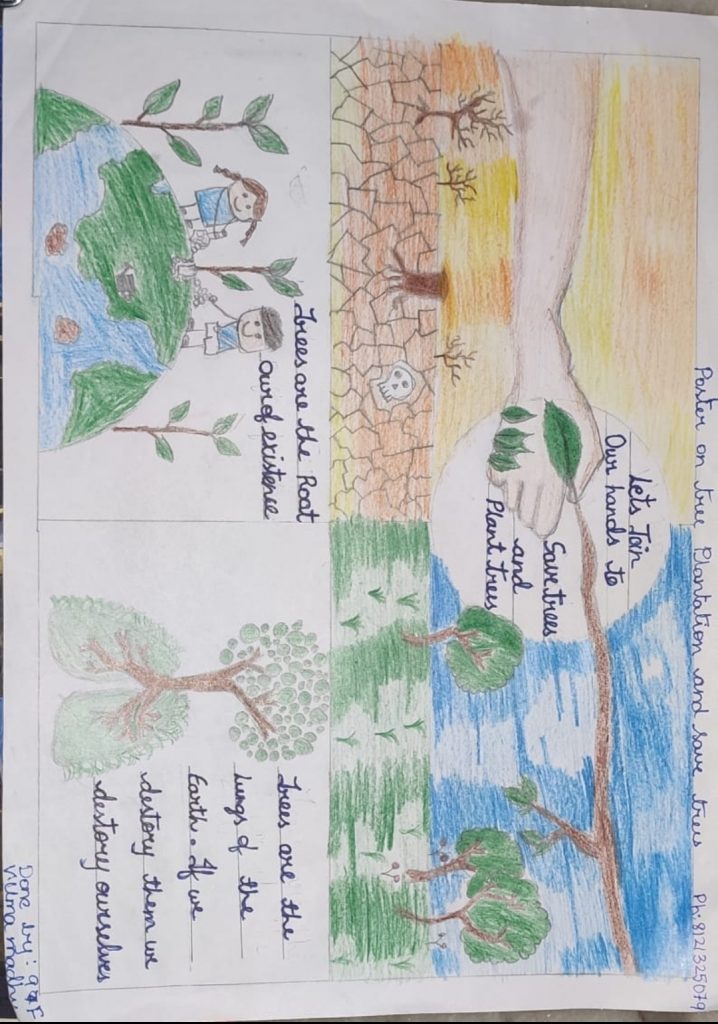 Poster on tree Plantation and save trees Ph: 8121325079
Let's Join
Our hands to
Save trees
and
Plant trees
Trees are the Root
our of existence
Trees are the
lungs of the
Earth. If we
destory them we
destory ourselves
Done by:
madhu